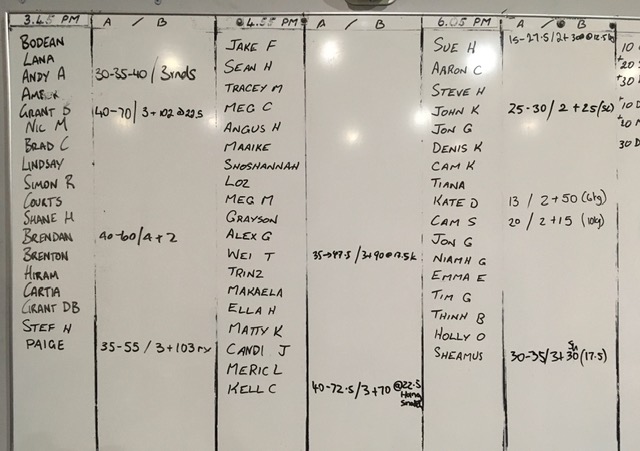 3.45 PM A / B 4.55 PM A / B 6.05 PM A / B
BODEAN
LANA
ANDY A 30-35-40 / 3 rnds
GRANT S 40-70 / 3 + 102 @ 22.5
NIC M
BRAD C
LINDSAY
SIMON R
COURTS
SHANE H
BRENDAN 40-60 / 4 + 2
BRENTON
HIRAM
CARTIA
GRANT DB
STEF H
PAIGE 35-55 / 3 + 103 rx
JAKE F
SEAN H
TRACEY M
MEG C
ANGUS H
MAAIKE
SHOSHANNAH
LOZ
MEG M
GRAYSON
ALEX G
WEI T 35→47.5 / 3+90 @ 12.5k
TRINZ
MAKAELA
ELLA H
MATTY K
CANDI J
MERIC L
KELL C 40-72.5 / 3 + 70 @22.5
SUE H 15-27.5 / 2 + 30 @ 12.5kg
AARON C
STEVE H
JOHN K 25-30 / 2 + 25
JON G
DENIS K
CAM K
TIANA
KATE D 13 / 2 + 50 (6kg)
CAM S 20 / 2 + 15 (10kg)
JON G
NIAMH G
EMMA E
TIM G
THINH B
HOLLY O
SHEAMUS 30-35 / 3 + 30 (17.5)
10
+20
+30
30